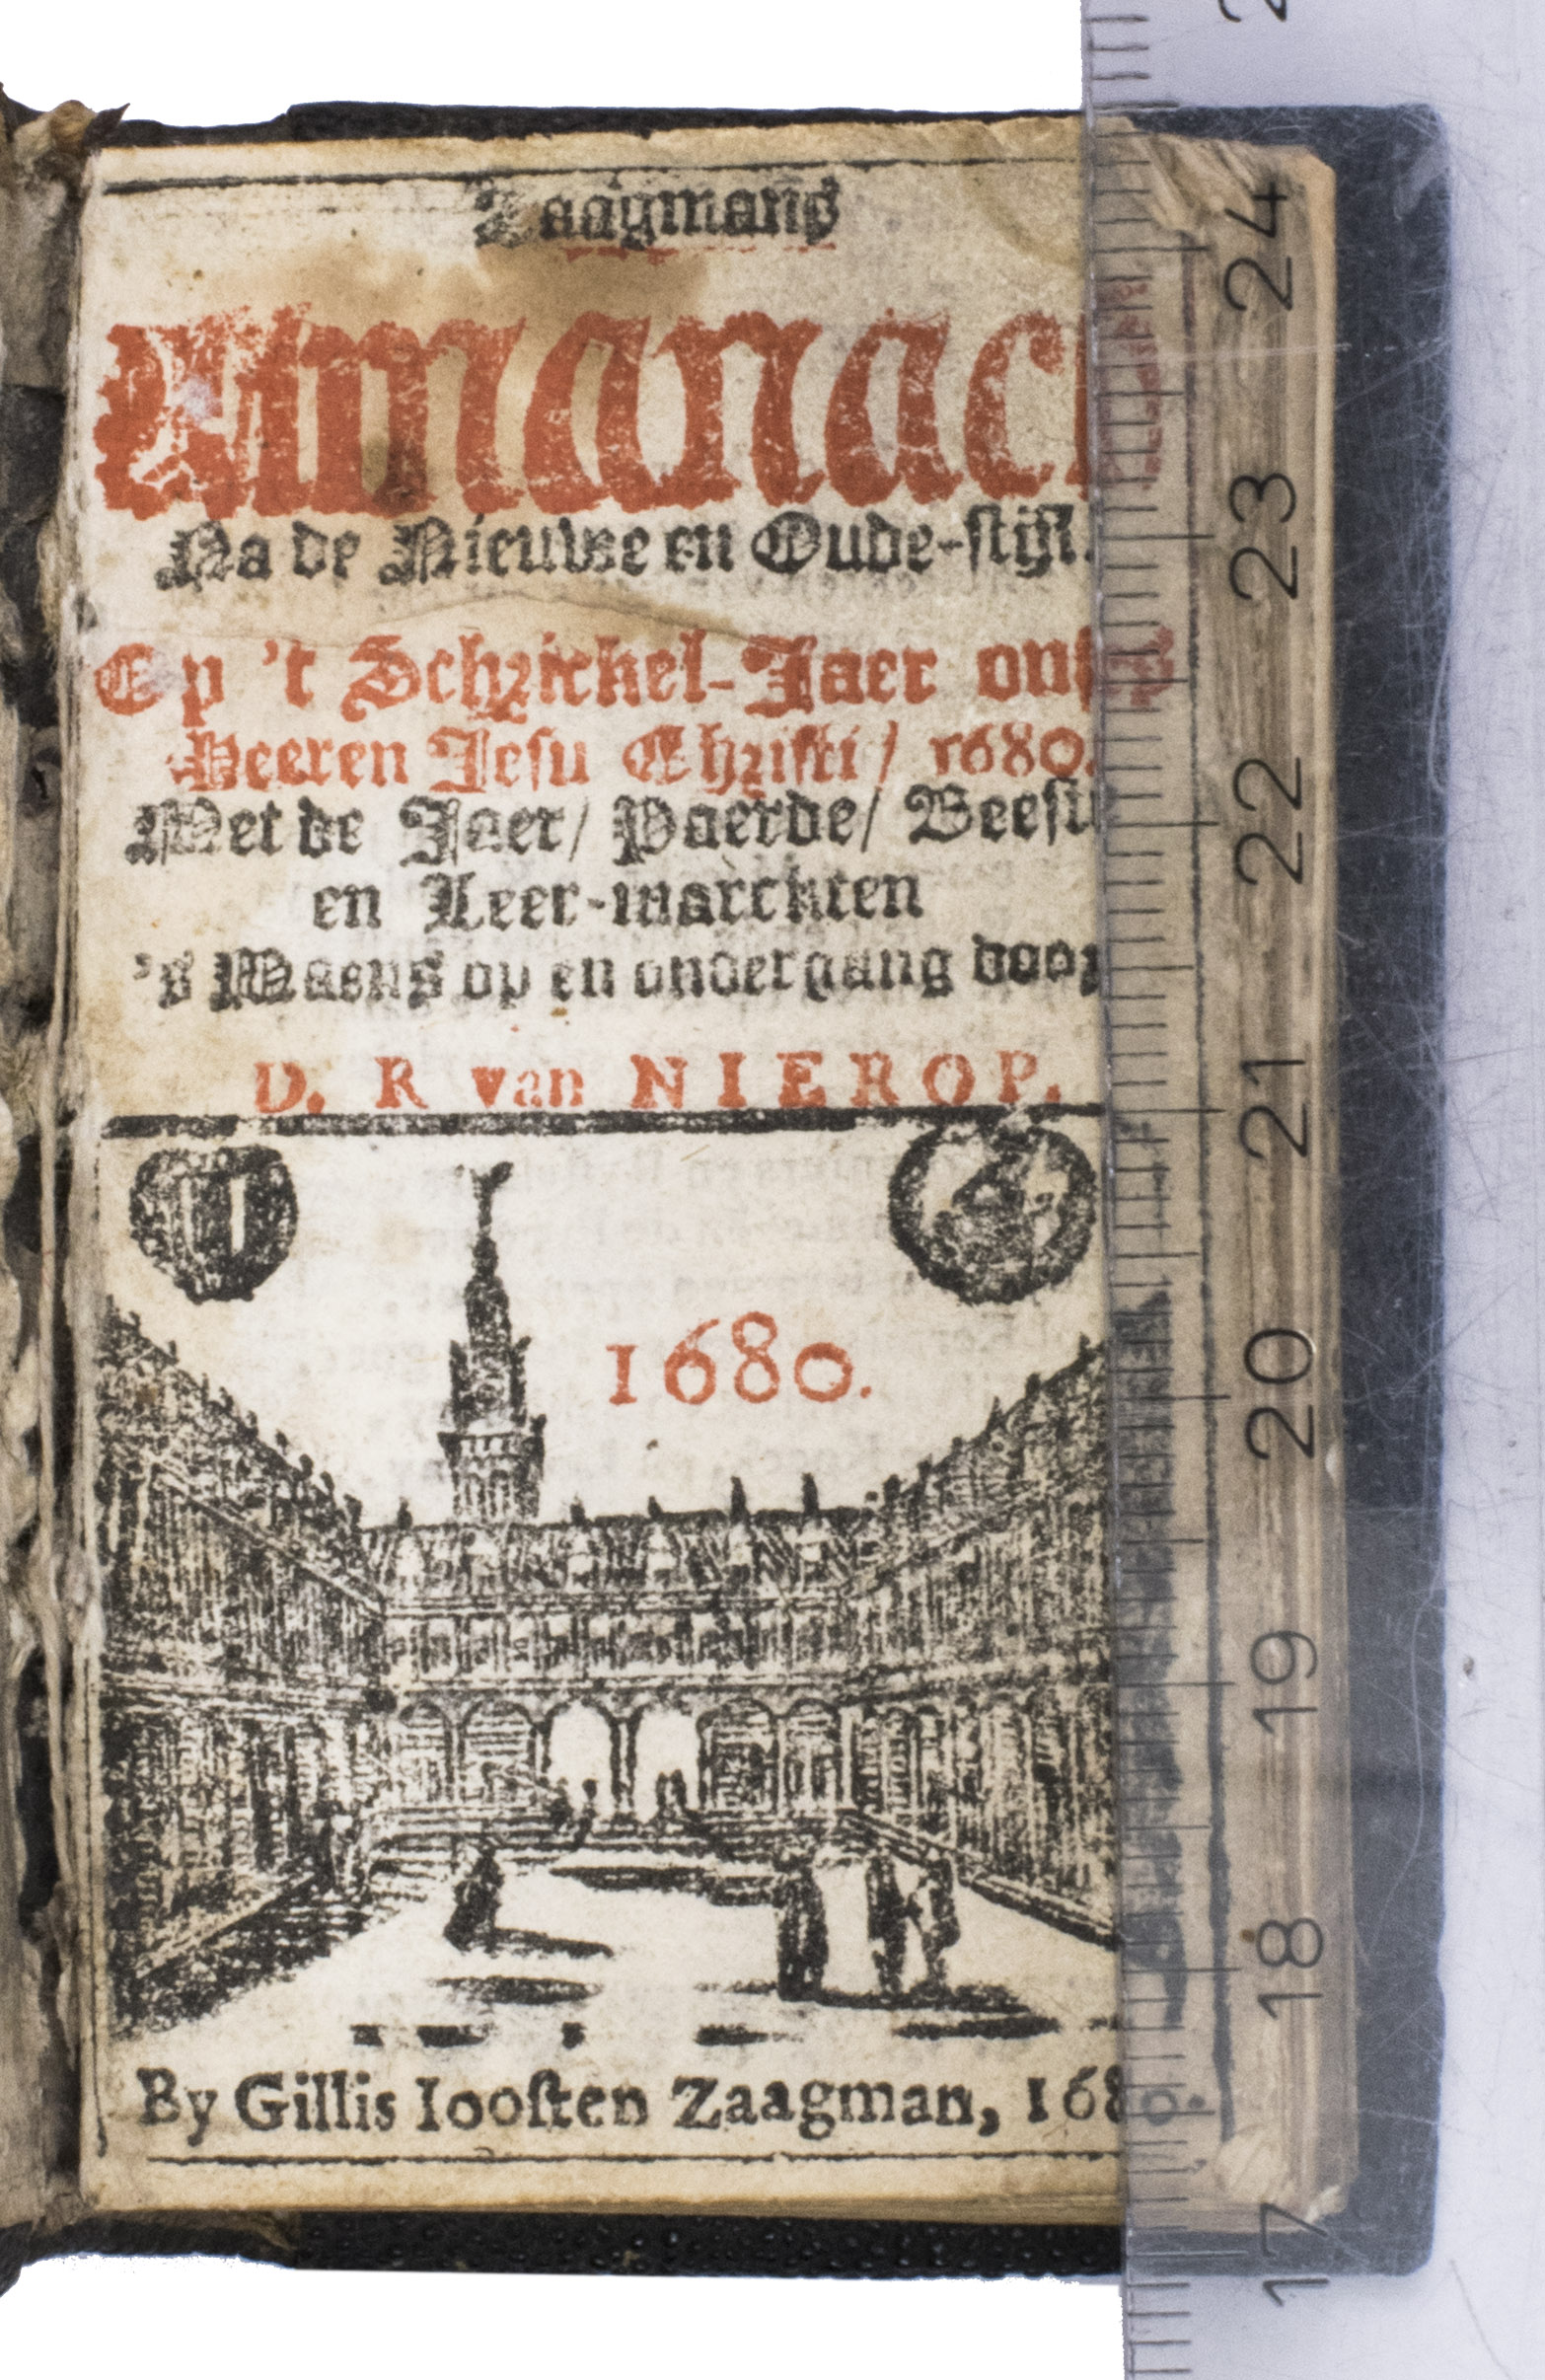 Zaagmans
Almanach
Na de Nieuwe en Oude-stijl.
Op 't Schrickel-Jaer onses
Heeren Jesu Christi / 1680.
Met de Jaer / Paerde / Beesten
en Leer-marckten
's Maens op en ondergang door
D. R van NIEROP.
1680.
By Gillis Iooſten Zaagman, 1680.
24
23
22
21
20
19
18
17